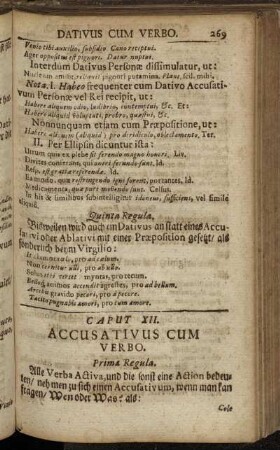 DATIVUS CUM VERBO. 269
Venio tibi auxilio, subsidio. Cano receptui.
Ager oppositus est pignori. Datur nuptui.
Interdum Dativus Personæ dissimulatur, ut:
mihi.
Nota. 1. Habeo frequenter cum Dativo Accusati-
vum Personæ vel Rei recipit, ut:
Habere aliquem odio, ludibrio, contemptui, &c. Et:
Habere aliquid voluptati, probro, quæstui, &c.
Nonnunquam etiam cum Præpositione, ut:
Habere aliquem pro deridiculo, Ter.
II. Per Ellipsin dicuntur ista:
Unum qui ex plebe sit ferendo magno honori. Liv.
Divites conferrent, qui oneri ferendo sunt. Id.
Resp. est gratiæ referendæ. Id.
Id.
Medicamenta, quæ purganda sunt. Celsus.
In his & similibus subintelligitur idoneus, sufficiens, vel simile
aliquid.
Quinta Regula.
Bißweilen wird auch ein Dativus an statt eines Accu-
sativi oder Ablativi mit einer Præposition gesetzt/ als
sonderlich beym Virgilio:
It clamor cælo, pro ad cælum.
pro ab ullo.
pro tecum.
Bello animos accendit agrestes, pro ad bellum.
Arcebis gravido pecori, pro à pecore.
pugnabis amori, pro cum amore.
CAPUT XII.
ACCUSATIVUS CUM
VERBO.
Prima Regula.
Alle Verba Activa, und die sonst eine Action bedeu-
ten/ nehmen zu sich einen Accusativum, wenn man kan
fragen/ Wen oder Was? als:
Cole